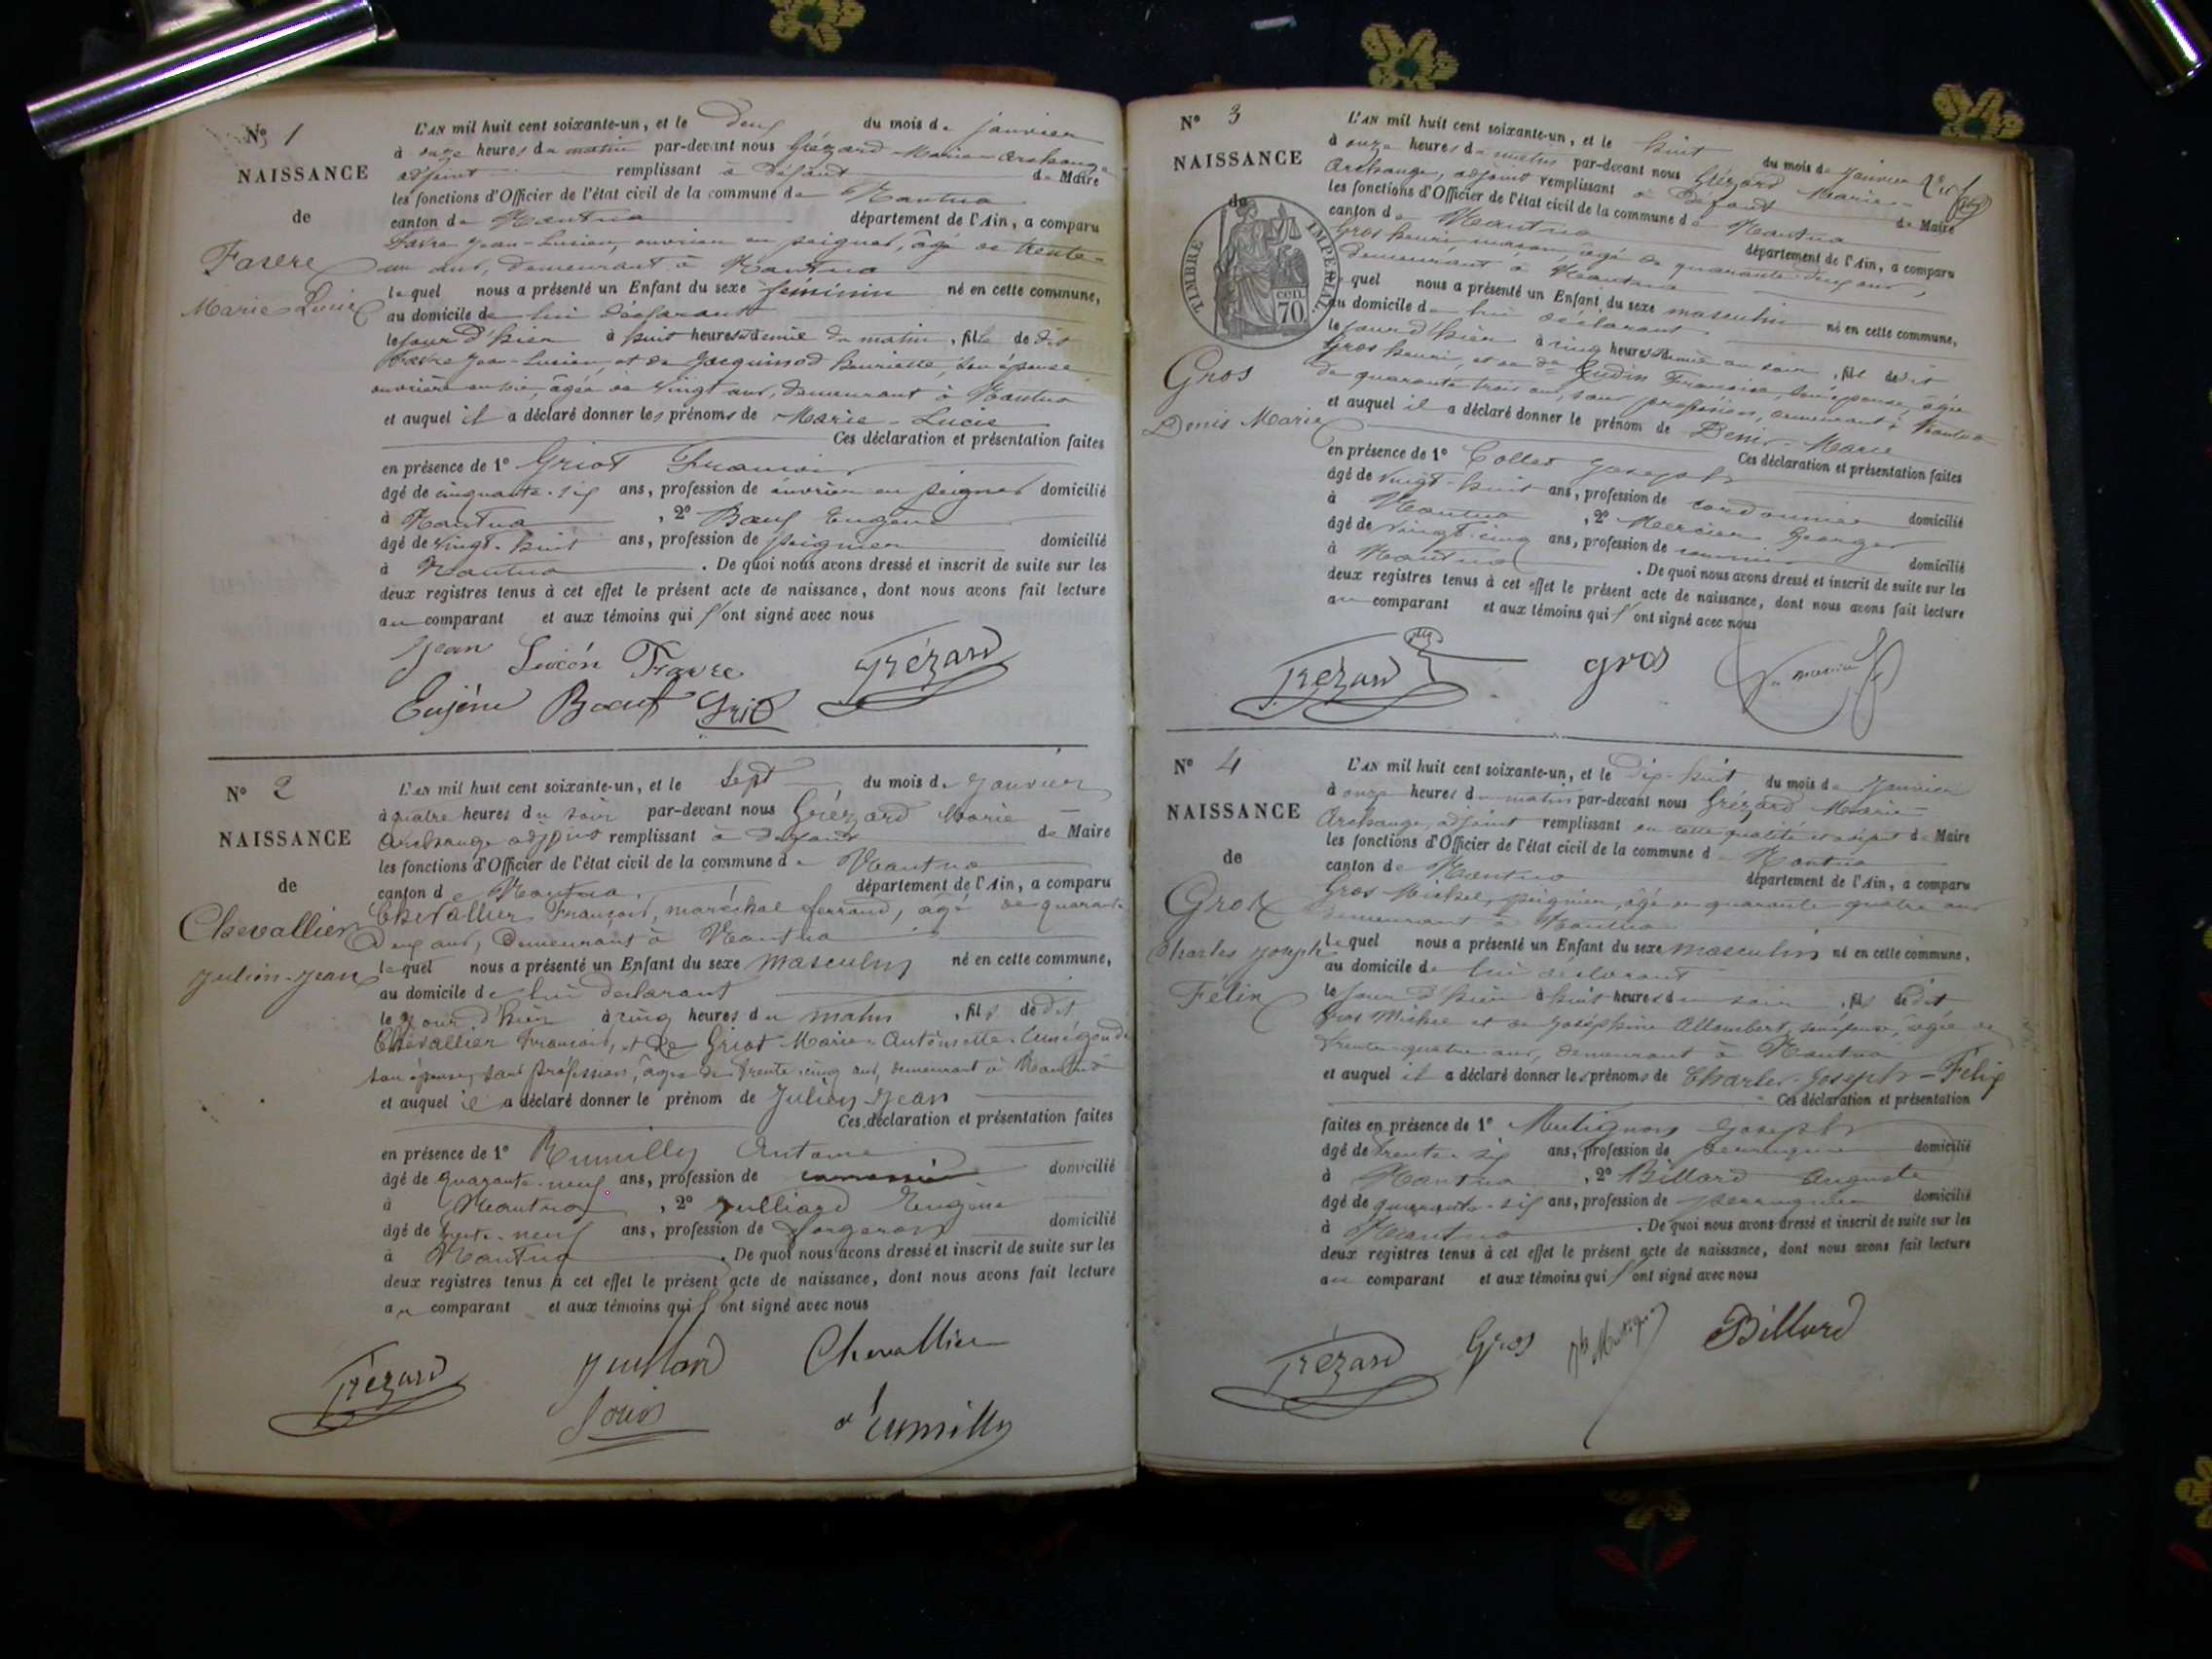 No 1
NAISSANCE
de
Favre
Marie-Lucie
L'AN mil huit cent soixante-un, et le deux du mois de janvier
à onze heures du matin par-devant nous Grézard Marie-Archange
adjoint remplissant à défaut de Maire
les fonctions d'Officier de l'état civil de la commune de Nantua
canton de Nantua département de l'Ain, a comparu
Favre Jean-Lucien, ouvrier en peignes, âgé de trente-
un ans, demeurant à Nantua
lequel nous a présenté un Enfant du sexe féminin né en cette commune,
au domicile de lui déclarant
le jour d'hier à huit heures et demie du matin, fille de dit
Favre Jean-Lucien, et de Jacquinod Henriette, son épouse
ouvrière en soie, âgée de vingt ans, demeurant à Nantua
et auquel il a déclaré donner les prénoms de Marie-Lucie
Ces déclaration et présentation faites
en présence de 1° Griot François
âgé de cinquante-six ans, profession de ouvrier en peignes domicilié
à Nantua, 2° Bœuf Eugène
âgé de vingt-huit ans, profession de peignier domicilié
à Nantua. De quoi nous avons dressé et inscrit de suite sur les
deux registres tenus à cet effet le présent acte de naissance, dont nous avons fait lecture
au comparant et aux témoins qui l'ont signé avec nous
Jean Lucien Favre Grézard
Eugéne Bœuf Griot
No 2
NAISSANCE
de
Chevallier
Julien-Jean
L'AN mil huit cent soixante-un, et le sept du mois de janvier
à quatre heures du soir par-devant nous Grézard Marie
Archange adjoint remplissant à défaut de Maire
les fonctions d'Officier de l'état civil de la commune de Nantua
canton de Nantua. département de l'Ain, a comparu
Chevallier François, maréchal ferrand, âgé de quarante
deux ans, demeurant à Nantua
lequel nous a présenté un Enfant du sexe masculin né en cette commune,
au domicile de lui déclarant
le jour d'hier à cinq heures du matin, fils de dit
Chevallier François, et de Griot Marie-Antoinette-Cunégonde
son épouse, sans profession, âgée de trente-cinq ans, demeurant à Nantua
et auquel il a déclaré donner le prénom de Julien-Jean
Ces déclaration et présentation faites
en présence de 1° Rumilly Antoine
âgé de quarante-neuf ans, profession de domicilié
à Nantua, 2° Julliard Eugène
âgé de trente-neuf ans, profession de forgeron domicilié
à Nantua. De quoi nous avons dressé et inscrit de suite sur les
deux registres tenus à cet effet le présent acte de naissance, dont nous avons fait lecture
au comparant et aux témoins qui l'ont signé avec nous
Grézard Julliard Chevallier
Rumilly
No 3
NAISSANCE
de
TIMBRE IMPERIAL
70 cen.
Gros
Denis Marie
L'AN mil huit cent soixante-un, et le huit du mois de janvier
à onze heures du matin par-devant nous Grézard Marie-
Archange, adjoint remplissant à défaut de Maire
les fonctions d'Officier de l'état civil de la commune de Nantua
canton de Nantua département de l'Ain, a comparu
Gros henri, maçon, âgé de quarante-deux ans,
demeurant à Nantua
lequel nous a présenté un Enfant du sexe masculin né en cette commune,
au domicile de lui déclarant
le jour d'hier à cinq heures et demie du soir, fils de dit
Gros henri, et de Gudin Françoise, son épouse, âgée
de quarante-trois ans, sans profession, demeurant à Nantua
et auquel il a déclaré donner le prénom de Denis-Marie
Ces déclaration et présentation faites
en présence de 1° Collet Joseph
âgé de vingt-huit ans, profession de cordonnier domicilié
à Nantua, 2° Mercier Georges
âgé de vingt-cinq ans, profession de domicilié
à Nantua. De quoi nous avons dressé et inscrit de suite sur les
deux registres tenus à cet effet le présent acte de naissance, dont nous avons fait lecture
au comparant et aux témoins qui l'ont signé avec nous
Grézard gros
No 4
NAISSANCE
de
Gros
Charles Joseph
Félix
L'AN mil huit cent soixante-un, et le dix-huit du mois de janvier
à onze heures du matin par-devant nous Grézard Marie-
Archange, adjoint remplissant en cette qualité de Maire
les fonctions d'Officier de l'état civil de la commune de Nantua
canton de Nantua département de l'Ain, a comparu
Gros Michel, peignier, âgé de quarante-quatre ans
demeurant à Nantua
lequel nous a présenté un Enfant du sexe masculin né en cette commune,
au domicile de lui déclarant
le jour d'hier à huit heures du soir, fils de dit
Gros Michel et de Joséphine Allombert, son épouse, âgée de
trente-quatre ans, demeurant à Nantua
et auquel il a déclaré donner les prénoms de Charles-Joseph-Félix
Ces déclaration et présentation
faites en présence de 1° Mutignon Joseph
âgé de trente-six ans, profession de domicilié
à Nantua, 2° Billard Auguste
âgé de quarante-six ans, profession de perruquier domicilié
à Nantua. De quoi nous avons dressé et inscrit de suite sur les
deux registres tenus à cet effet le présent acte de naissance, dont nous avons fait lecture
au comparant et aux témoins qui l'ont signé avec nous
Grézard Gros Billard